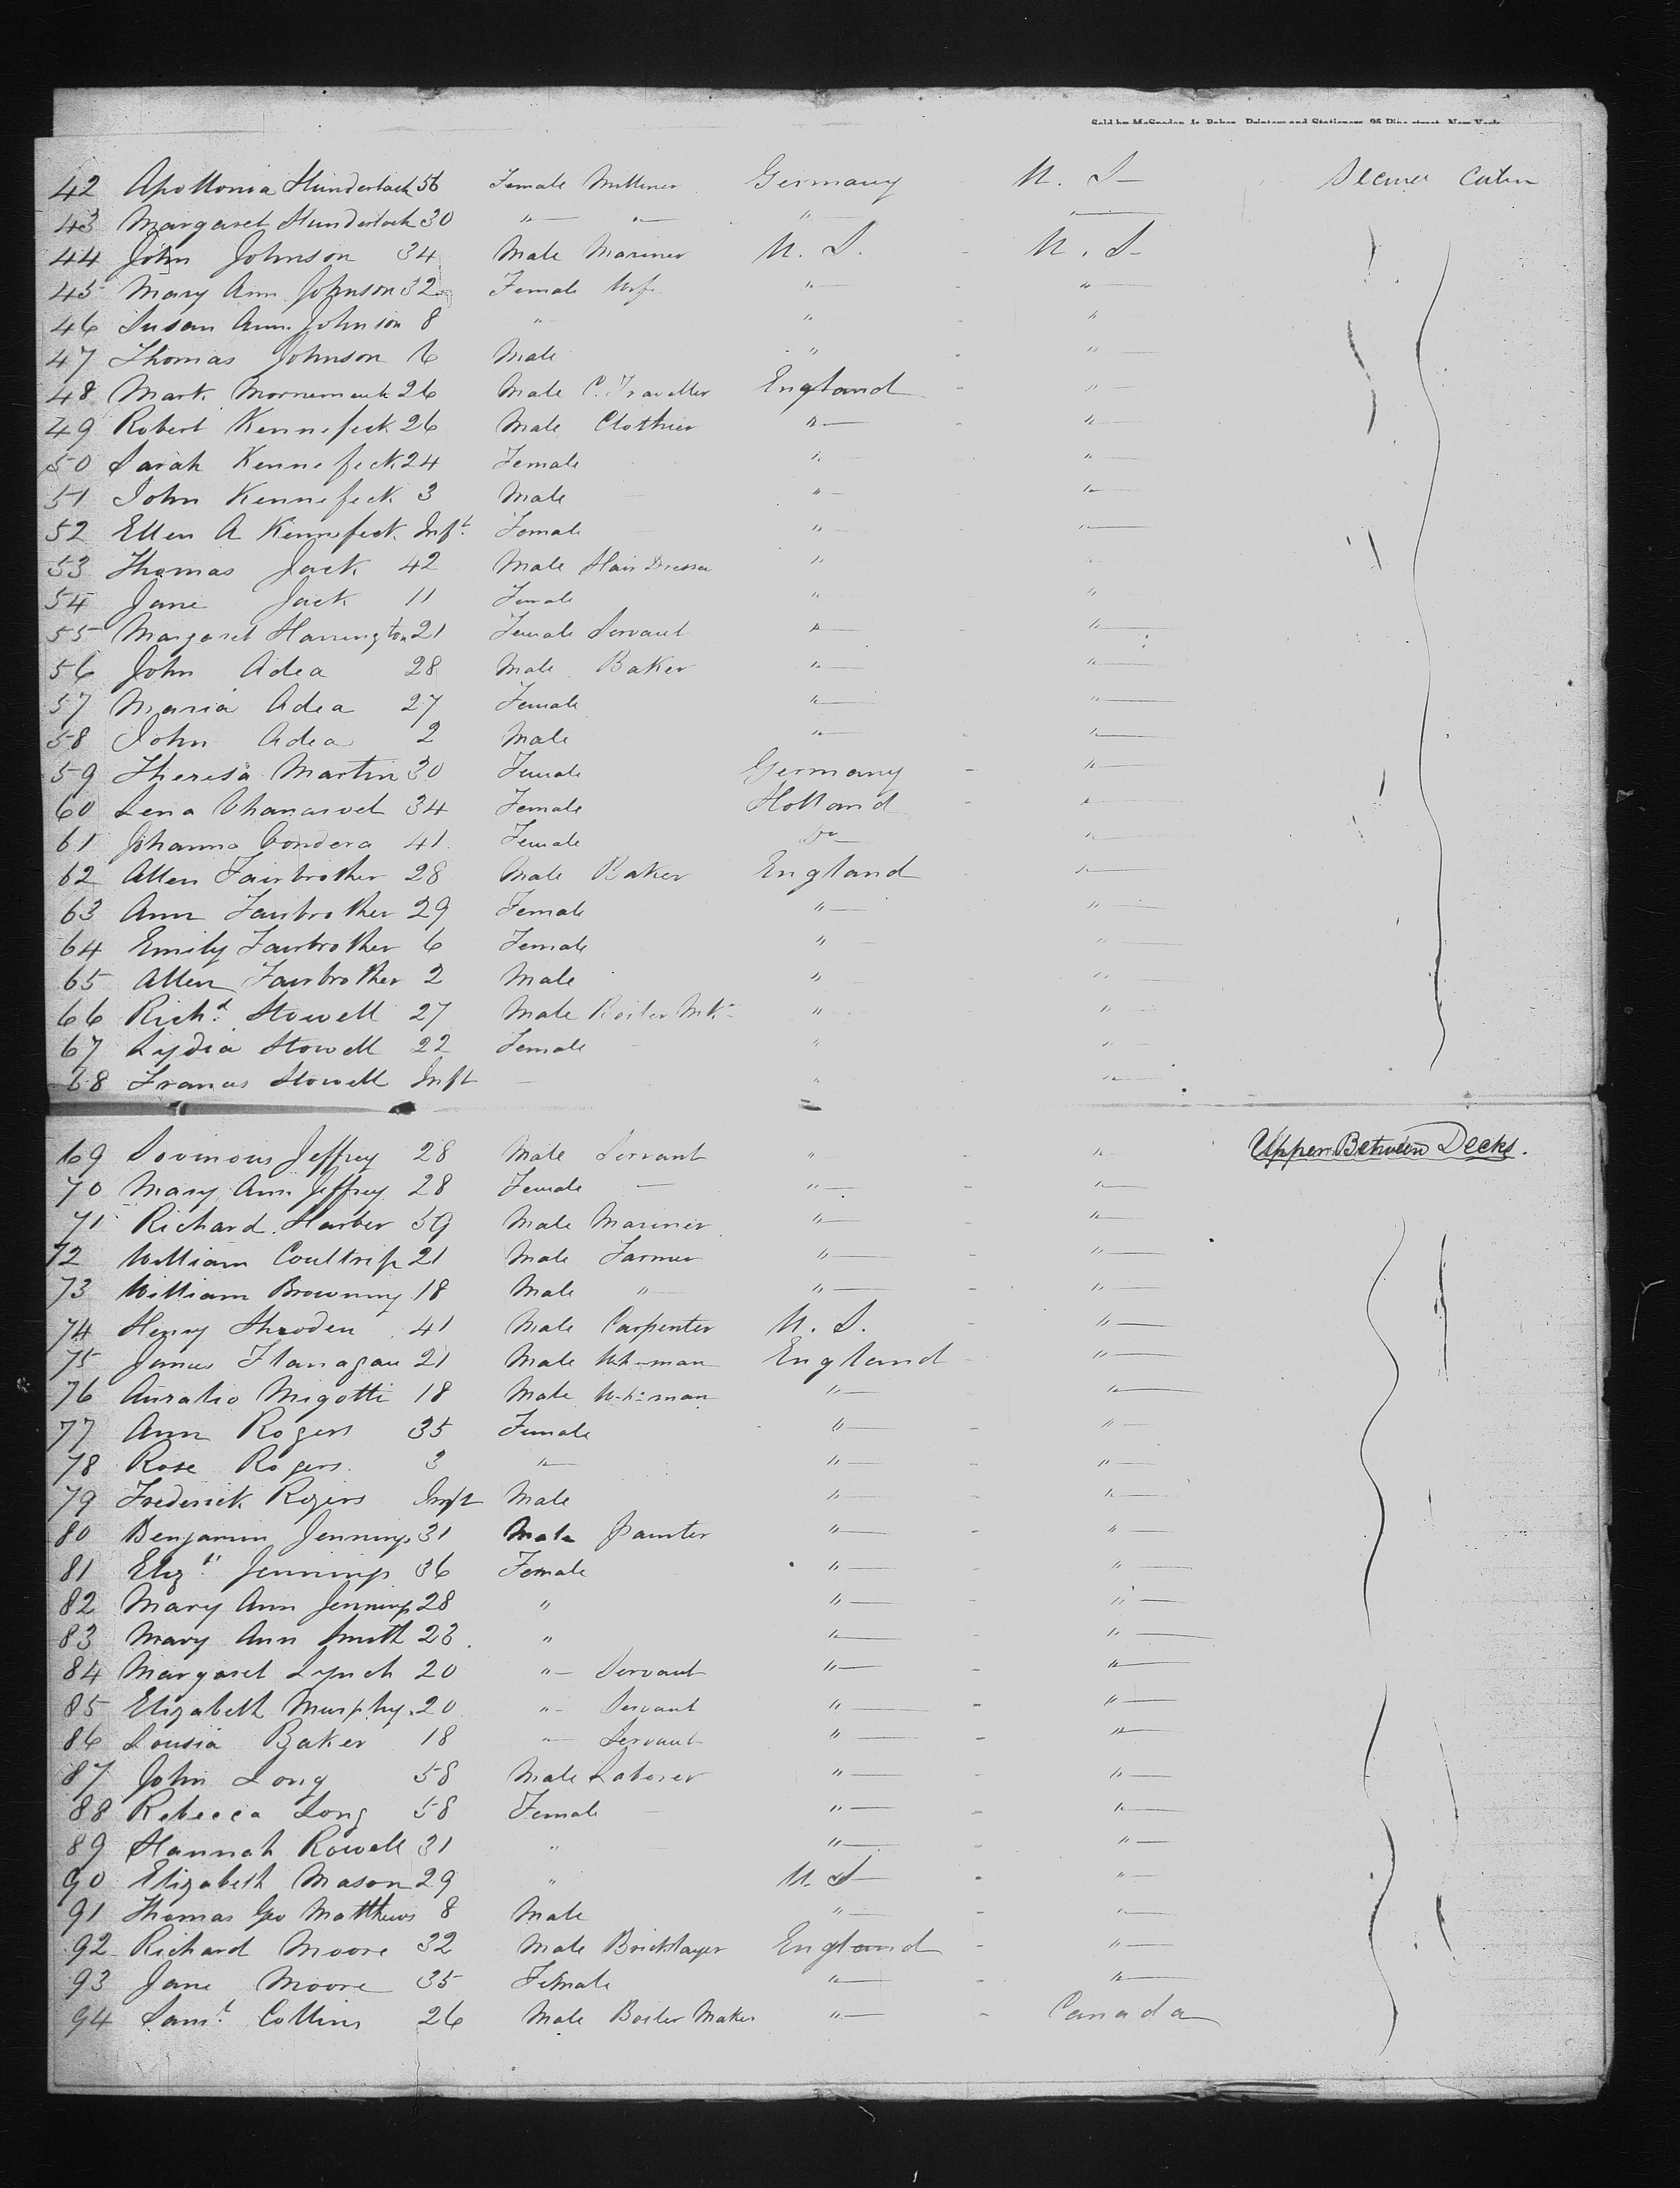 Sold by McSpedon & Baker, Printers and Stationers, 25 Pine street, New York
42 Apollonia Hunderlach 56 Female Milliner Germany U. S Second Cabin
43 Margaret Hunderlach 30 " " " "
44 John Johnson 34 Male Mariner U. S. U. S
45 Mary Ann Johnson 32 Female Wife " "
46 Susan Ann Johnson 8 " " "
47 Thomas Johnson 6 Male " "
48 Mark Mornement 26 Male C. Traveller England "
49 Robert Kennefeck 26 Male Clothier " "
50 Sarah Kennefeck 24 Female " "
51 John Kennefeck 3 Male " "
52 Ellen A Kennefeck Inft Female " "
53 Thomas Jack 42 Male Hair Dresser " "
54 Jane Jack 11 Female " "
55 Margaret Harrington 21 Female Servant " "
56 John Adea 28 Male Baker " "
57 Maria Adea 27 Female " "
58 John Adea 2 Male " "
59 Theresa Martin 30 Female Germany "
60 Lena 34 Female Holland "
61 Johanna Condera 41 Female Do "
62 Allen Fairbrother 28 Male Baker England "
63 Ann Fairbrother 29 Female " "
64 Emily Fairbrother 6 Female " "
65 Allen Fairbrother 2 Male " "
66 Richd Stowell 27 Male Boiler Mkr " "
67 Lydia Stowell 22 Female " "
68 Frances Stowell Inft — " "
69 Jeffrey 28 Male Servant " " Upper Between Decks.
70 Mary Ann Jeffrey 28 Female — " "
71 Richard Harber 39 Male Mariner " "
72 William Coultrip 21 Male Farmer " "
73 William Browning 18 Male " " "
74 Henry Shroden 41 Male Carpenter U. S. "
75 James Flanagan 21 Male Wh-man England "
76 Auralio Migotti 18 Male Wh-man " "
77 Ann Rogers 35 Female " "
78 Rose Rogers 3 " " "
79 Frederick Rogers Inft Male " "
80 Benjamin Jennings 31 Male Painter " "
81 Elizth Jennings 36 Female " "
82 Mary Ann Jennings 28 " " "
83 Mary Ann Smith 23 " " "
84 Margaret Lynch 20 " Servant " "
85 Elizabeth Murphy 20 " Servant " "
86 Lousia Baker 18 " Servant " "
87 John Long 58 Male Laborer " "
88 Rebecca Long 58 Female " "
89 Hannah Rowell 31 " " "
90 Elizabeth Mason 29 " U. S "
91 Thomas Geo Matthews 8 Male " "
92 Richard Moore 32 Male Bricklayer England "
93 Jane Moore 35 Female " "
94 Saml Collins 26 Male Boiler Maker " Canada